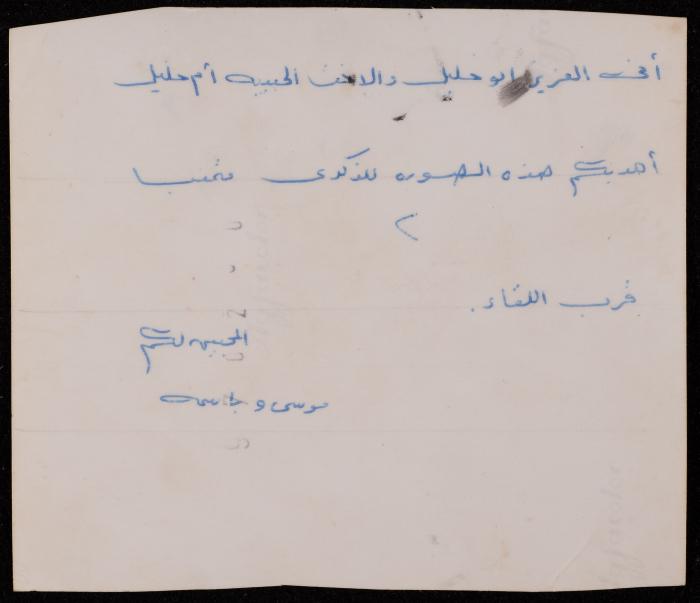 أخي العزيز ابو خليل والاخت الحبيبه أم خليل
أهديكم هذه الصوره للذكرى متمنيا
قرب اللقاء.
المحبين لكم
موسى و باسمه